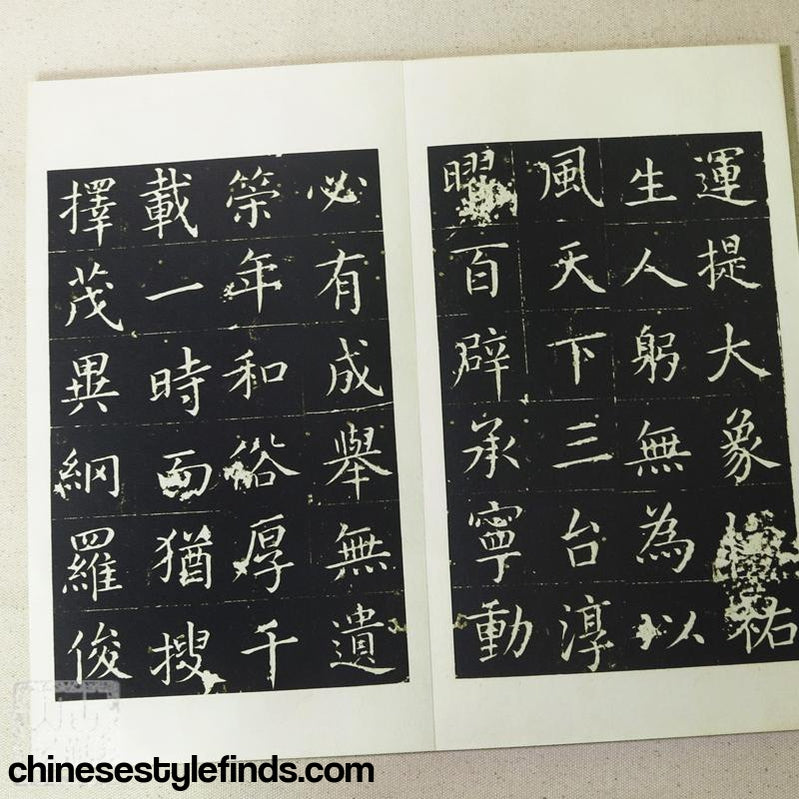 運提大象祐
生人躬無為以
風天下三台淳
曜百辟承寧動
必有成舉無遺
筞年和俗厚千
載一時而猶搜
擇茂異網羅俊
chinesestylefinds.com